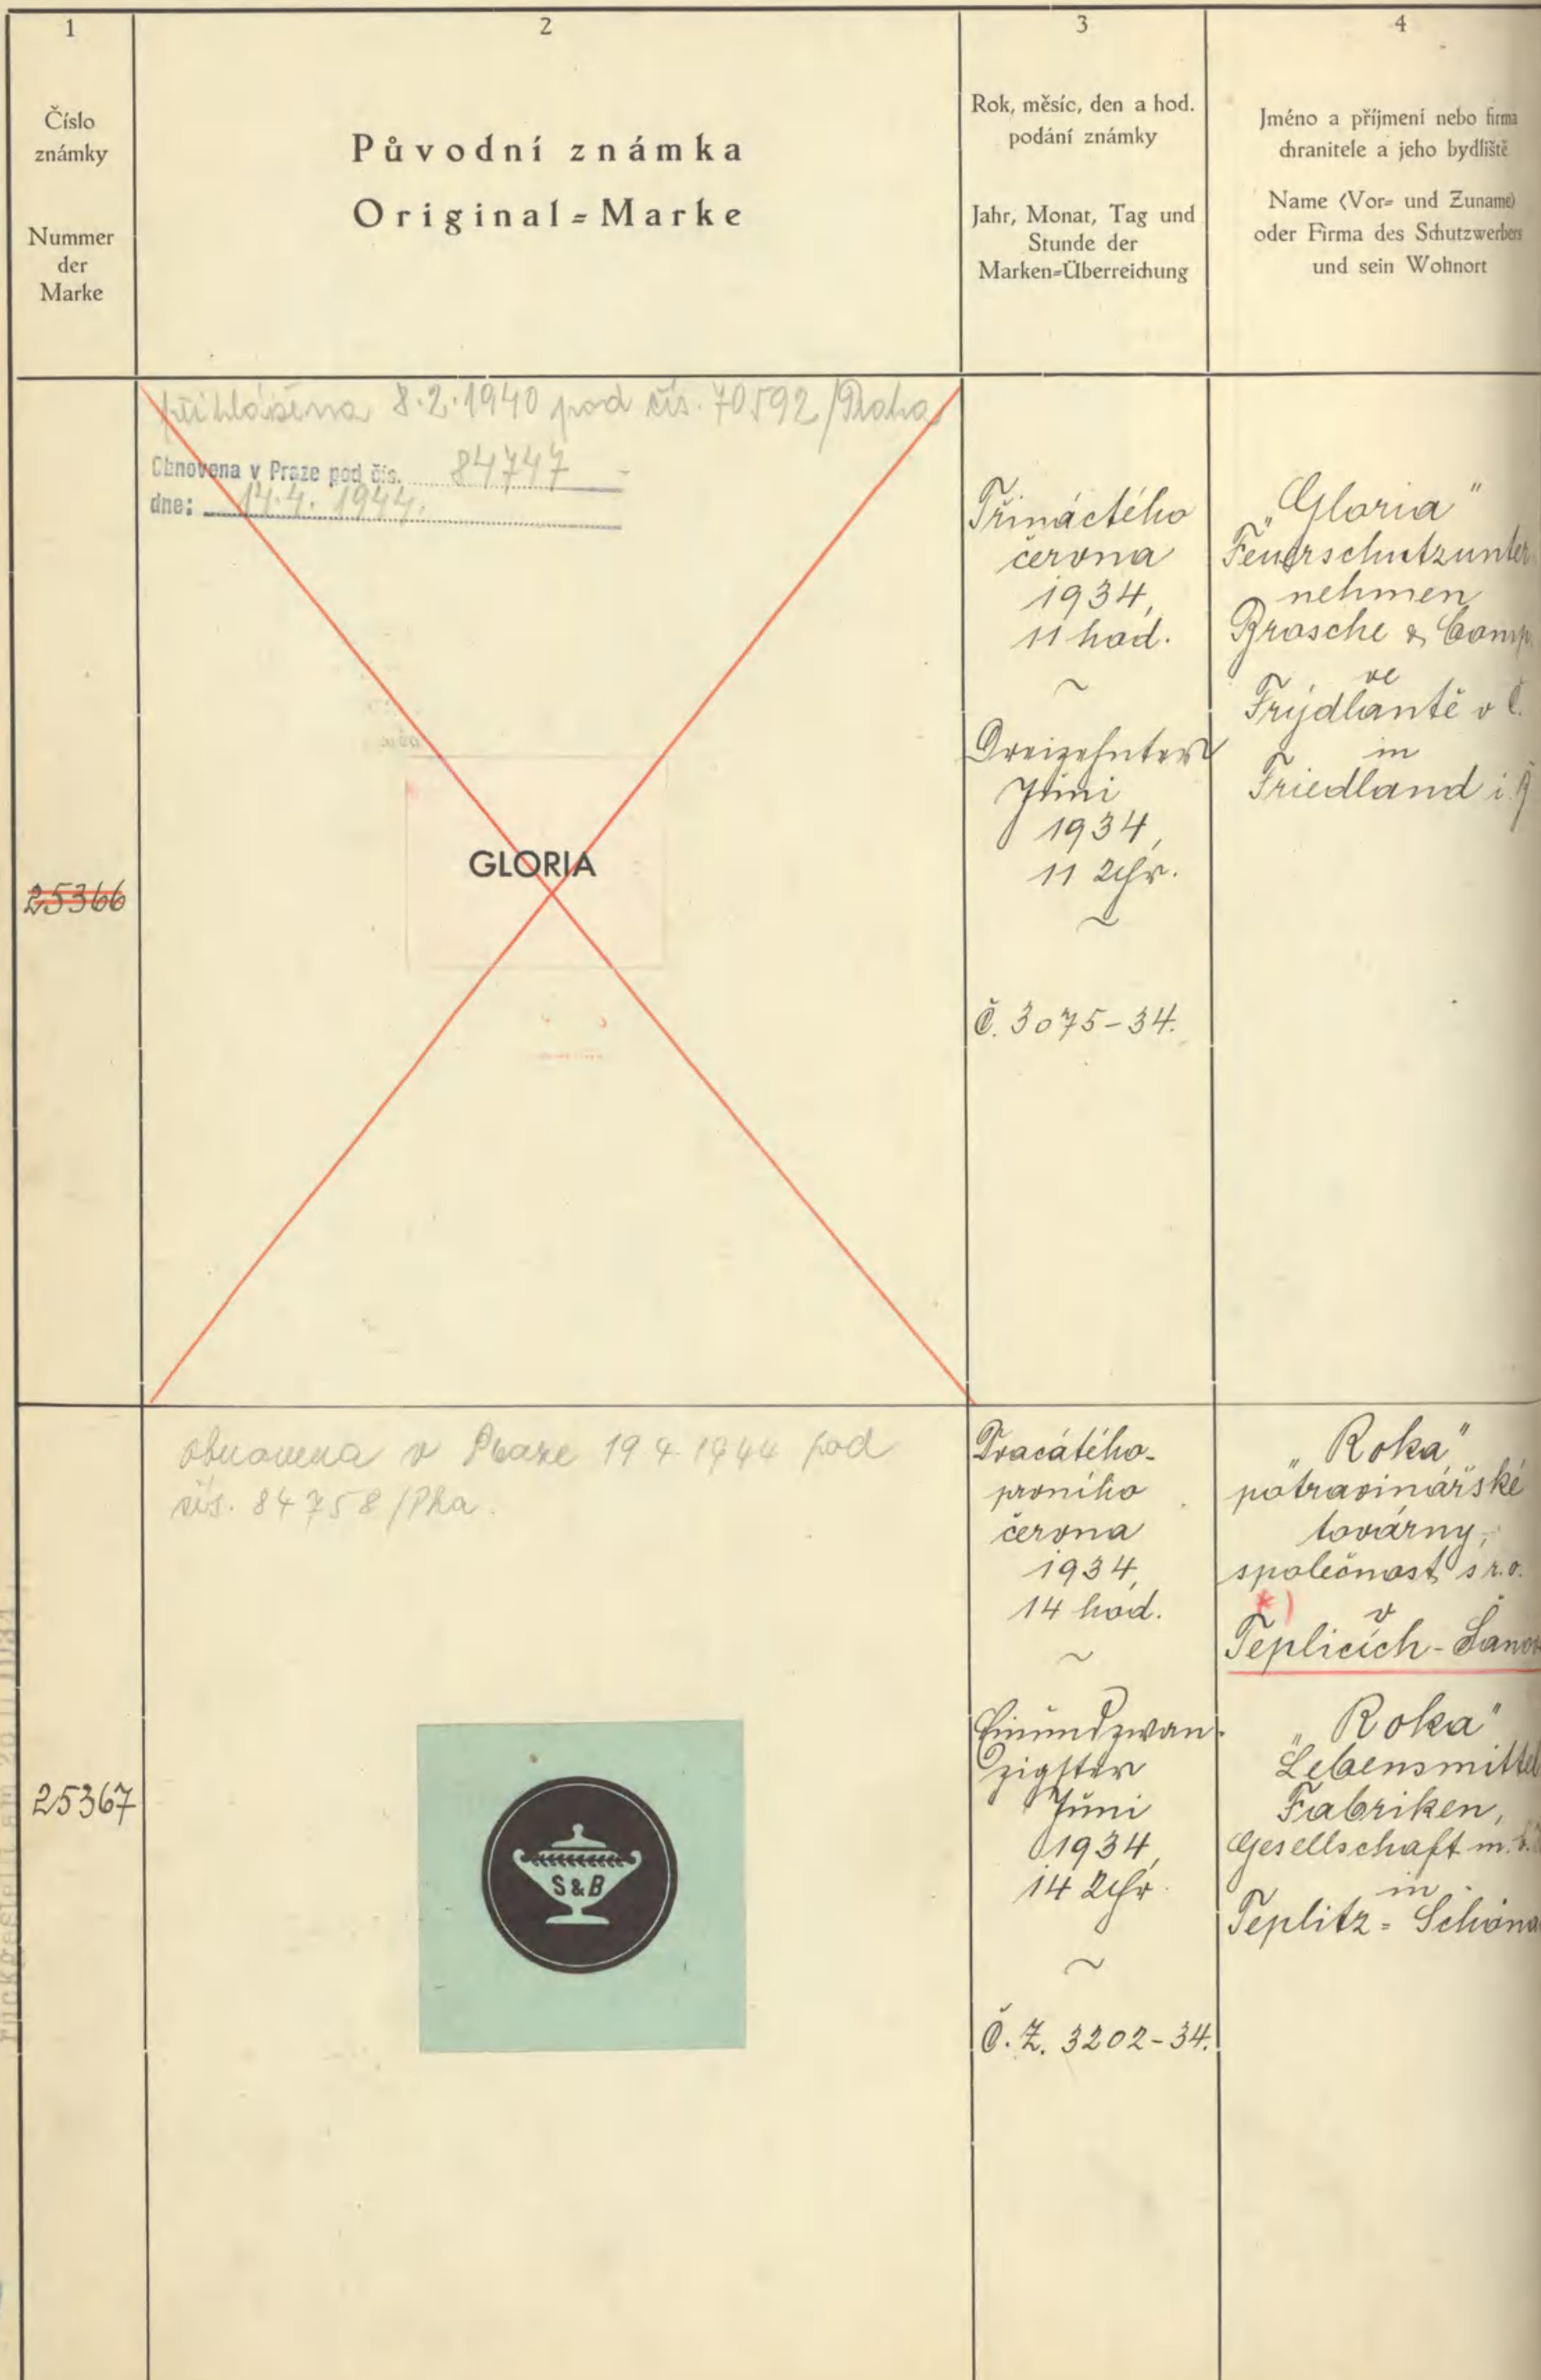 1
2
3
4
Číslo
známky
Nummer
der
Marke
Původní známka
Original=Marke
Rok, měsíc, den a hod.
podání známky
Jahr, Monat, Tag und
Stunde der
Marken=Überreichung
Jméno a příjmení nebo firma
chranitele a jeho bydliště
Name (Vor= und Zuname)
oder Firma des Schutzwerbers
und sein Wohnort
25366
přihlášena 8.2.1940 pod čís. 70592/Praha
Obnovena v Praze pod čís. 84747
dne: 14.4.1944.
GLORIA
Třináctého
června
1934,
11 hod.
~
Dreizehnter
Juni
1934,
11 Uhr.
~
Č. 3075-34.
"Gloria"
Feuerschutzunter
nehmen
Brosche & Comp.
ve
Frýdlantě v Č.
in
Friedland i. B
25367
obnovena v Praze 19 4 1944 pod
čís. 84758/Pha.
S & B
Dvacátého-
prvního
června
1934,
14 hod.
~
Einundzwan-
zigster
Juni
1934,
14 Uhr.
~
Č. Z. 3202-34.
"Roka"
potravinářské
továrny,
společnost s r.o.
*) v
Teplicích-Šanov
"Roka"
Lebensmittel
Fabriken,
Gesellschaft m. b.
in
Teplitz=Schöna